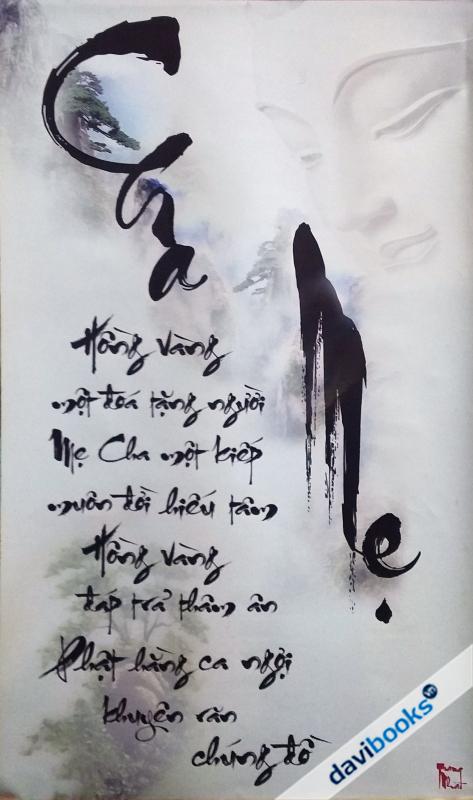 Cha
Mẹ
Hồng vàng
một đoá tặng người
Mẹ Cha một kiếp
muôn đời hiếu tâm
Hồng vàng
đáp trả thâm ân
Phật hằng ca ngợi
khuyên răn
chúng đồ
davibooks.vn